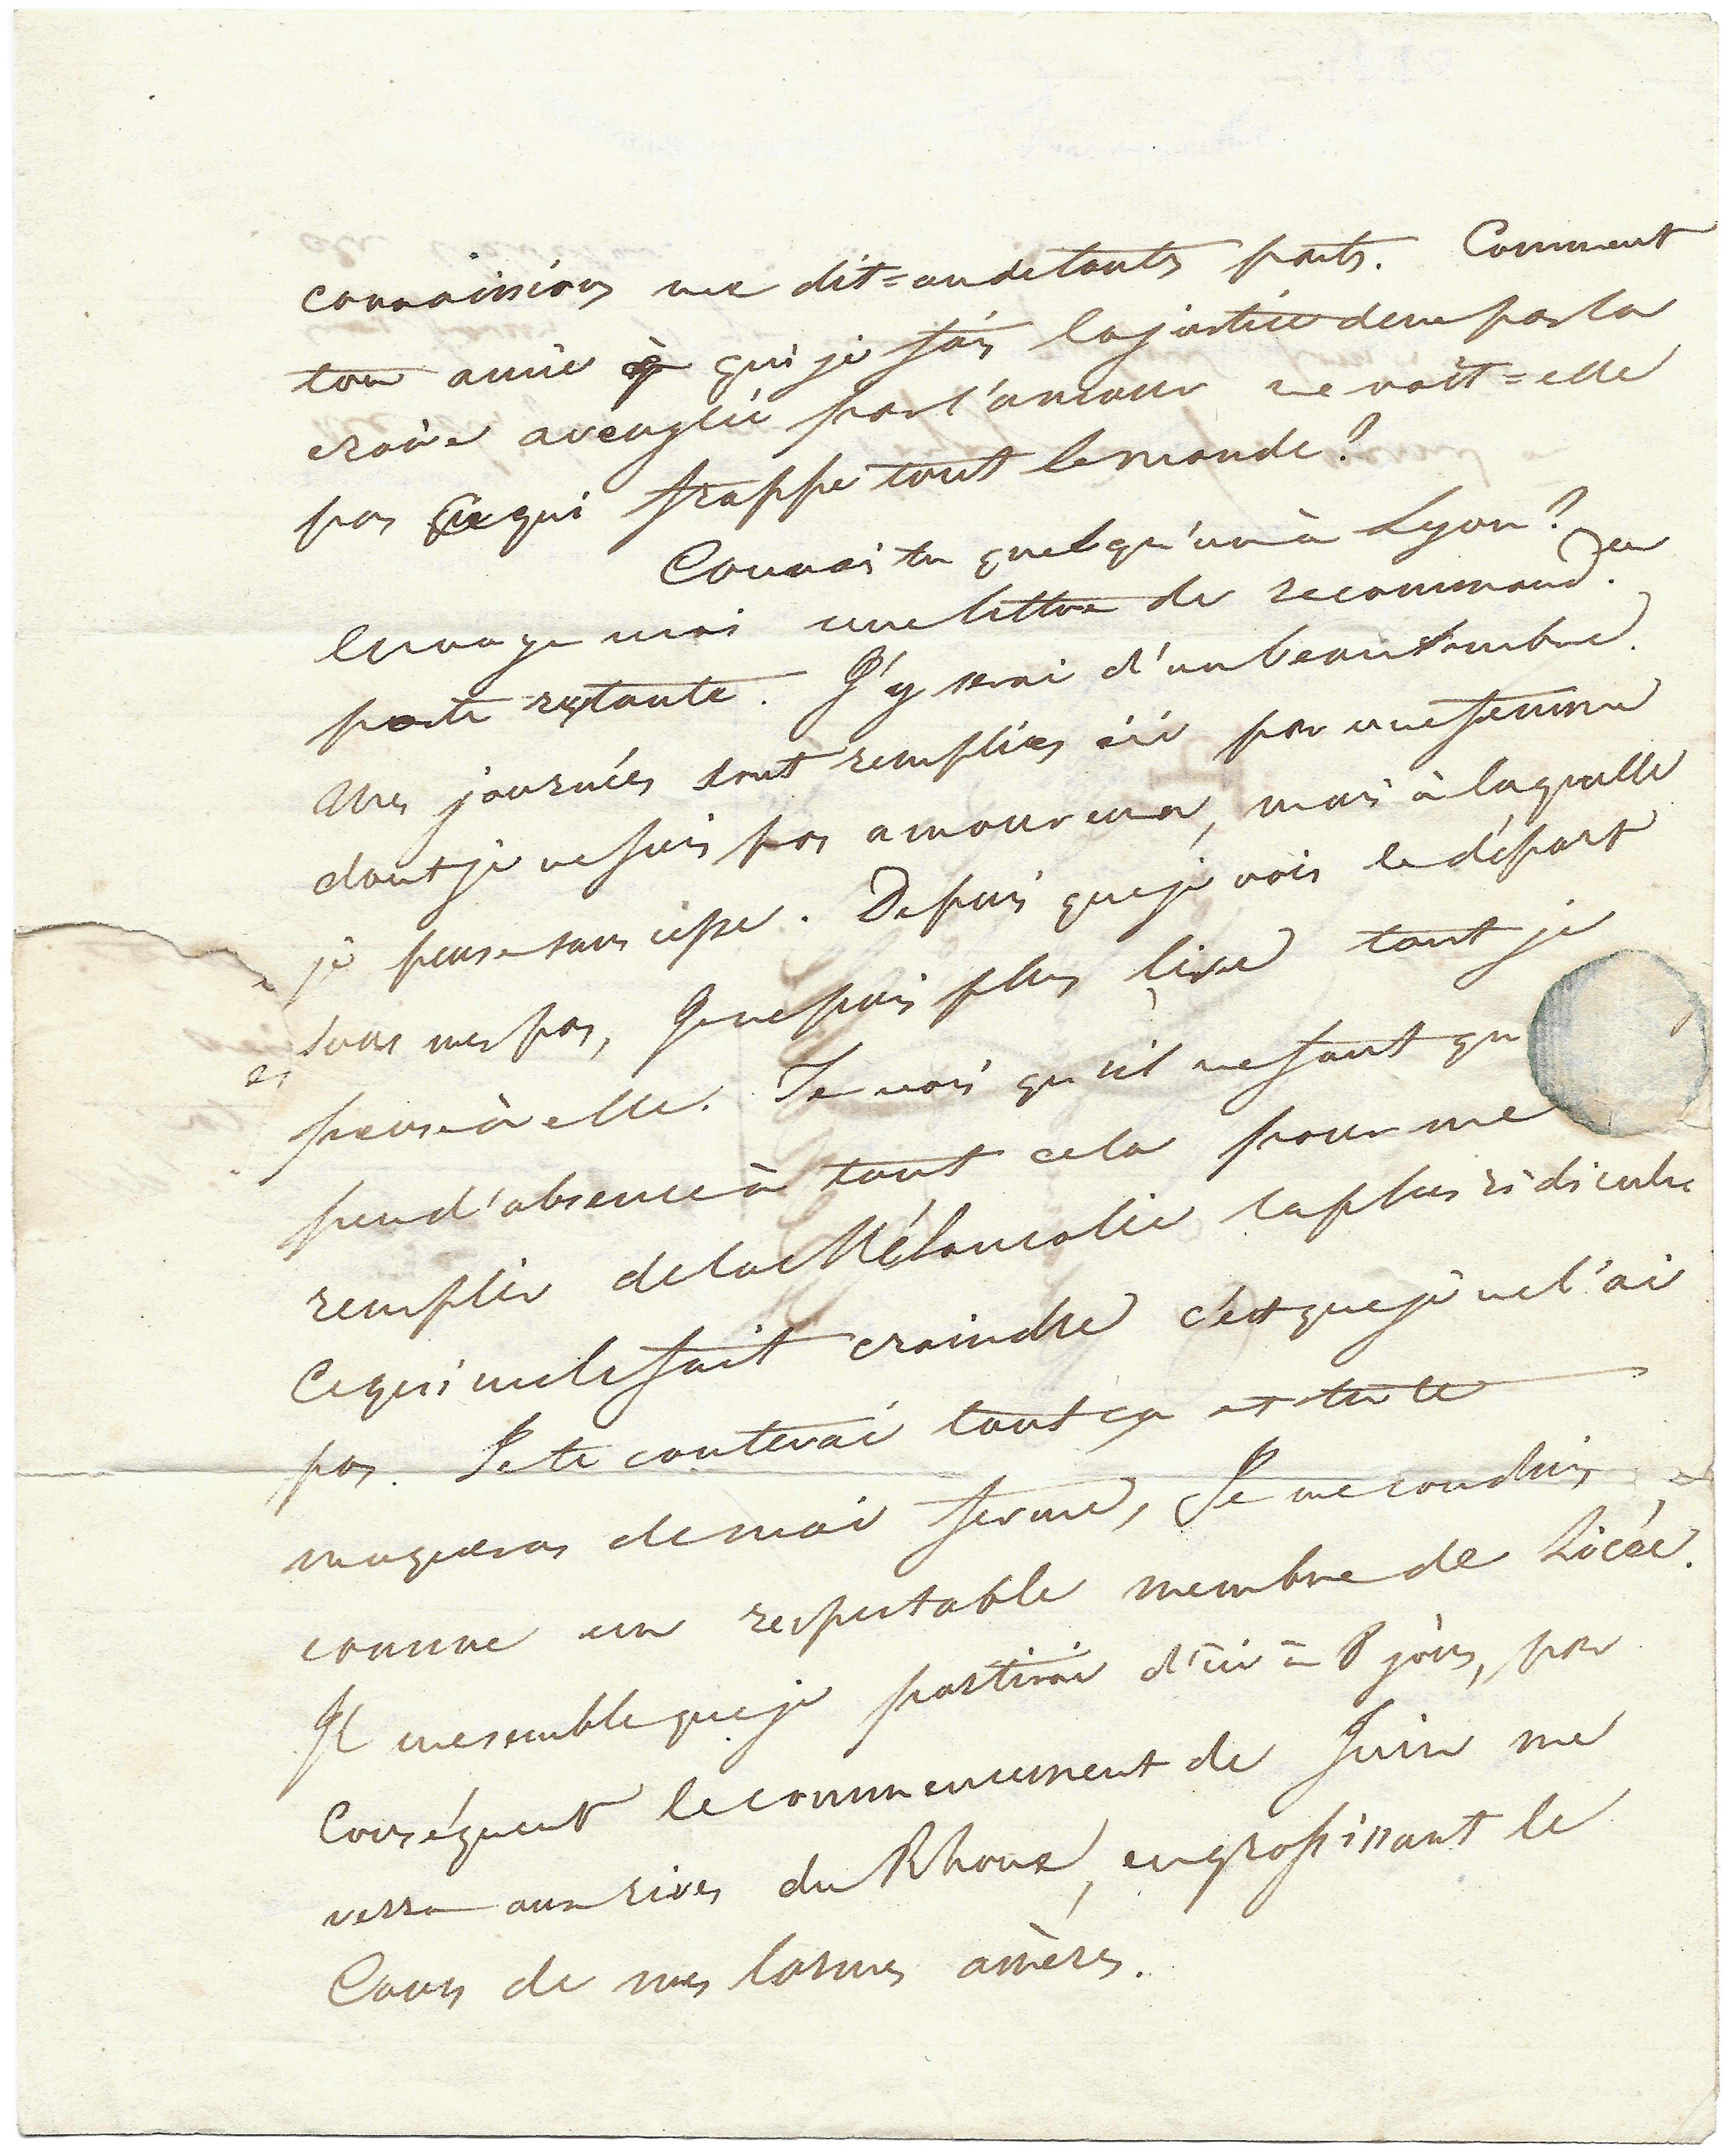 connaissions me dit=on de touts parts. Comment
ton amie à qui je fais la justice de ne pas la
croire aveuglée par l'amour ne voit=elle
pas ce qui frappe tout le monde?
Connais tu quelqu'un à Lyon?
Envoye moi une lettre de recommand.on
poste restante. J'y serai d'un beau sombre.
Mes journées sont remplies ici par une femme
dont je ne suis pas amoureux, mais à laquelle
je pense sans cesse. Depuis que je vois le départ
sous mes pas, je ne puis plus lire tant je
pense à elle. Je vois qu'il ne faut qu
peu d'absence à tout cela pour me
remplir de la Mélancolie la plus ridicule
Ce qui me le fait craindre c'est que je ne l'ai
pas. Je te conterai tout ça et tu te
moqueras de moi ferme, Je me conduis
comme un respectable membre de Licée.
Il me semble que je partirai d'ici à 8 jours, par
Conséquent le commencement de Juin me
verra aux rives du Rhone, en grossissant le
Cours de mes larmes amères.